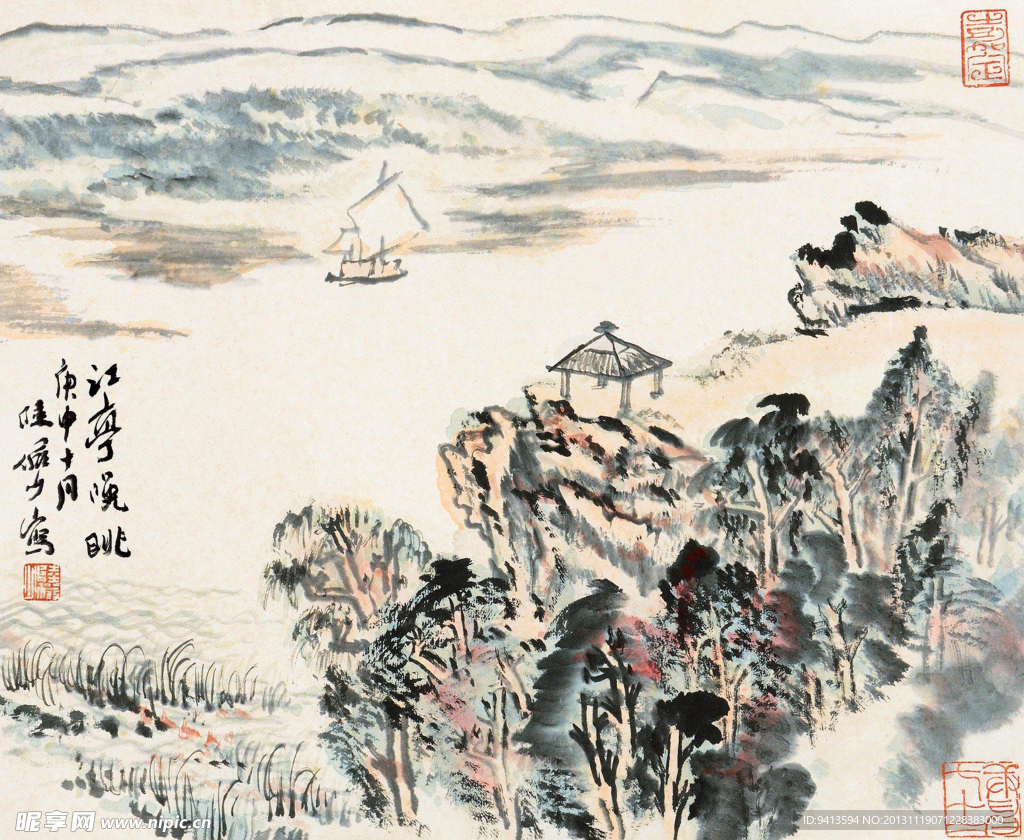 江亭晚眺
庚申十月
陸儼少寫
昵享网 www.nipic.cn
ID:9413594 NO:20131119071228383000